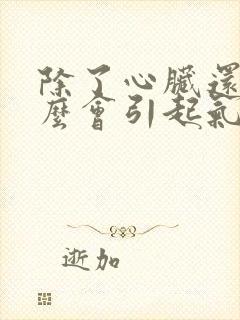 除了心臟還
麼會引起氣
逝加